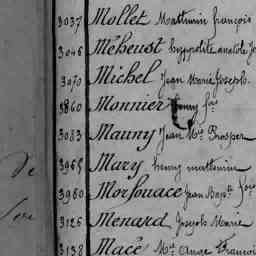 3037 Mollet Mathurin françois
3046 Méheust hyppolite anatole
3070 Michel Jean Marie Joseph.
3860 Monnier henry fois
3083 Mauny Jean Mie Prosper
3965 Mary henry mathurin
3960 Morfouace Jean Bapte fois
3125 Menard Joseph Marie
3138 Macé Mie Ange François